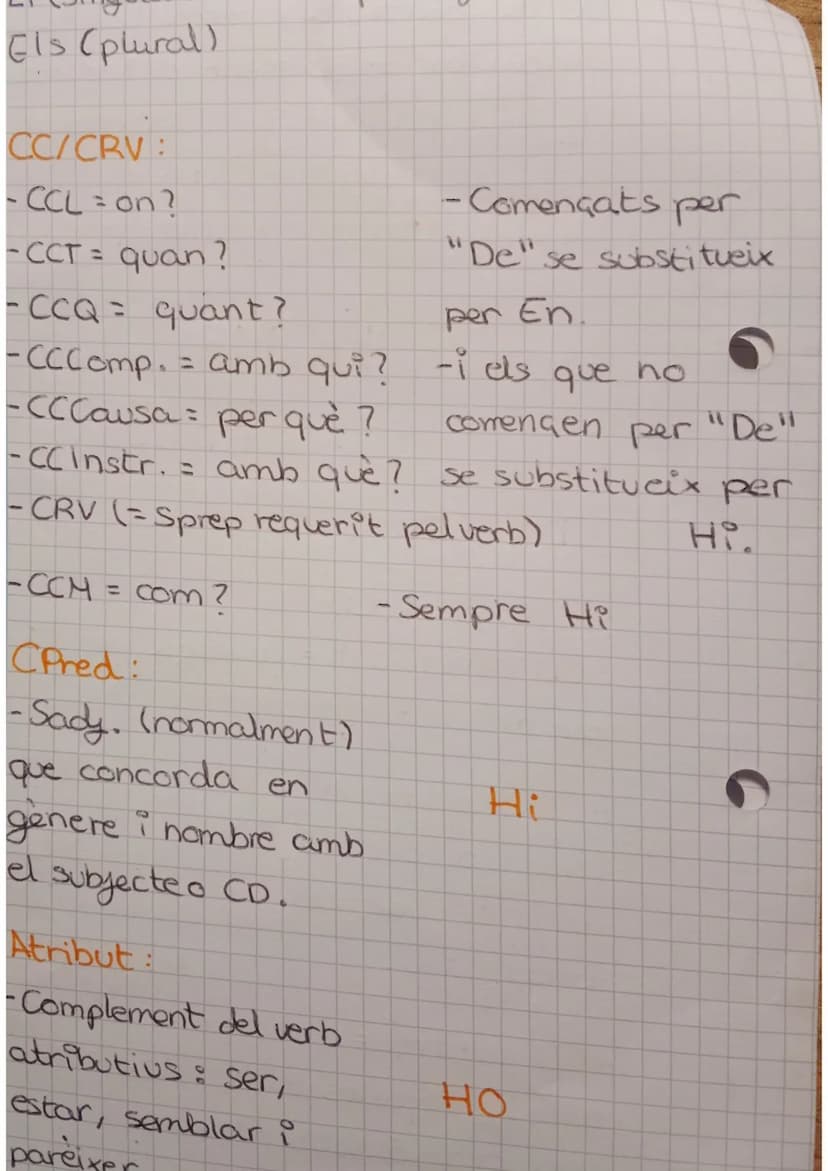 Els (plural)
CC/CRV:
- CCL = on?
- CCT = quan?
- CCQ = quant?
- CCComp. = amb qui?
- CCCausa = per què?
- CCInstr. = amb què?
- CRV (= Sprep requerit pel verb)
- Començats per
"De" se substitueix
per En.
- i els que no
comencen per "De"
se substitueix per
Hi.
- CCM = com?
- Sempre Hi
CPred:
- Sadj. (normalment)
que concorda en
gènere i nombre amb
el subjecte o CD.
Hi
Atribut:
- Complement del verb
atributius: ser,
estar, semblar i
parèixer
HO